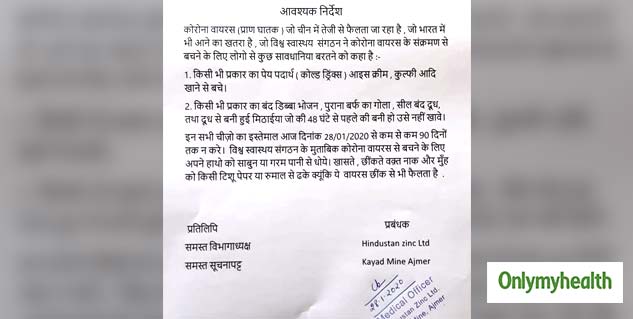 आवश्यक निर्देश
कोरोना वायरस (प्राण घातक ) जो चीन में तेजी से फैलता जा रहा है , जो भारत में
भी आने का खतरा है , जो विश्व स्वास्थय संगठन ने कोरोना वायरस के संक्रमण से
बचने के लिए लोगो से कुछ सावधानिया बरतने को कहा है :-
1. किसी भी प्रकार का पेय पदार्थ ( कोल्ड ड्रिंक्स ) आइस क्रीम , कुल्फी आदि
खाने से बचे।
2. किसी भी प्रकार का बंद डिब्बा भोजन , पुराना बर्फ का गोला , सील बंद दूध,
तथा दूध से बनी हुई मिठाईया जो की 48 घंटे से पहले की बनी हो उसे नहीं खावे।
इन सभी चीज़ो का इस्तेमाल आज दिनांक 28/01/2020 से कम से कम 90 दिनों
तक न करे। विश्व स्वास्थय संगठन के मुताबिक कोरोना वायरस से बचने के लिए
अपने हाथो को साबुन या गरम पानी से धोये। खासते , छींकते वक़्त नाक और मुँह
को किसी टिशू पेपर या रुमाल से ढके क्यूंकि ये वायरस छींक से भी फैलता है .
प्रतिलिपि
प्रबंधक
समस्त विभागाध्यक्ष
Hindustan zinc Ltd
समस्त सूचनापट्ट
Kayad Mine Ajmer
28-1-2020
Medical Officer
Zinc Ltd.
Mine, Ajmer
Onlymyhealth